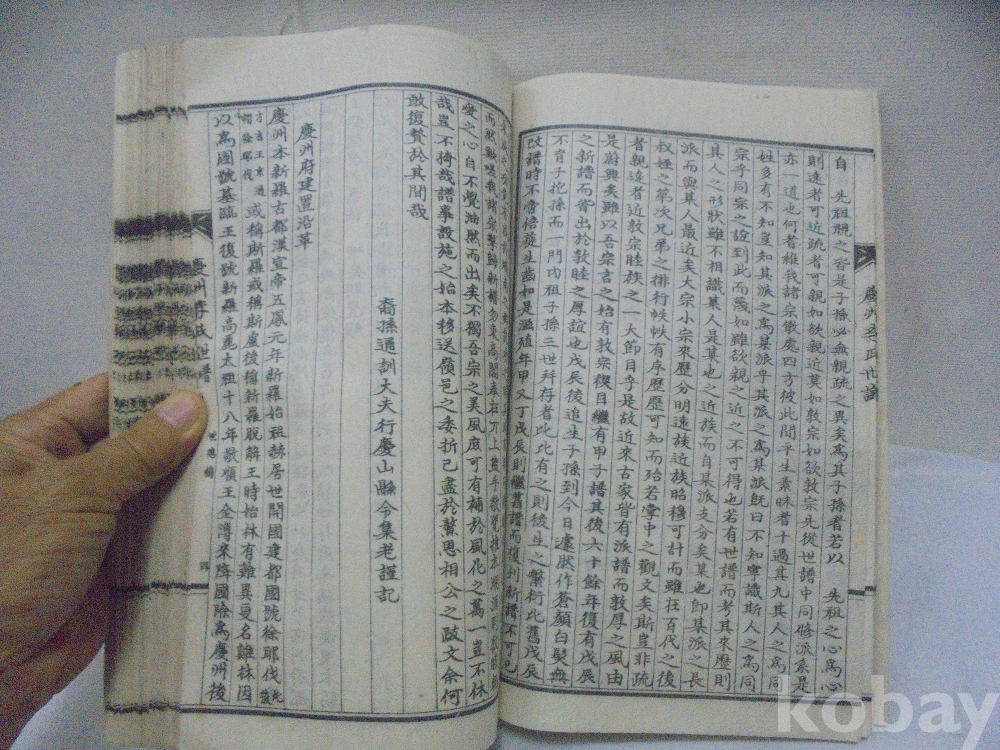 自 先祖視之皆是子孫必無親疏之異矣爲其子孫者若以 先祖之心爲心
則遠者可近疏者可親如欲親近莫如敦宗如欲敦宗先從世譜中同修派系是
亦一道也何者雖我諸宗散處四方彼此間平生素昧者十過其九其人之爲同
姓多有不知豈知其派之爲某派乎其派之爲某派旣曰不知寧識斯人之爲同
宗乎同宗之誼到此而蔑如雖欲親之近之不可得也若有世譜而考其來歷則
其人之形狀雖不相識某人是某也之近族而自某派支分矣某也卽某派之長
派而與某人最近矣大宗小宗來歷分明遠族近族昭穆可計而雖在百代之後
叔姪之第次兄弟之排行帙帙有序歷歷可知而殆若掌中之觀文矣斯豈非疏
者親遠者近敦宗睦族之一大節目乎是故近來古家皆有派譜而敦厚之風由
是蔚興矣雖以吾宗言之始有敦宗稧目繼有甲子譜其後六十餘年復有戊辰
之新譜而皆出於敦睦之厚誼也戊辰後追生子孫到今日遽然作蒼顔白髮無
不育子抱孫而一門內祖子孫三世幷存者比比有之則後生之繁衍比舊戊辰
改譜時不啻倍蓰生齒如是滋殖年甲又丁戊辰則繼舊譜而復刊新譜不可已
愛之心自不覺油然而出矣不獨吾宗之美風庶可有補於風化之萬一豈不休
哉豈不猗哉譜事設施之始本移送願邑之委折已盡於鰲恩相公之跋文余何
敢復贅於其間哉
裔孫通訓大夫行慶山縣令集老謹記
慶州府建置沿革
慶州本新羅古都漢宣帝五鳳元年新羅始祖赫居世開國建都國號徐耶伐
或稱斯羅或稱斯盧後稱新羅脫解王時始林有雞異更名雞林因
以爲國號基臨王復號新羅高麗太祖十八年敬順王金溥來降國除爲慶州後
慶州李氏世譜
慶州李氏世譜
kobay